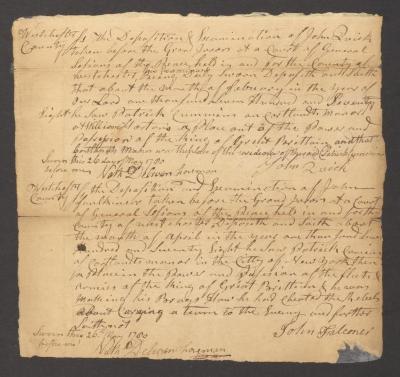 Westchester County ss The Deposition & Examination of John Quick
taken before the Grand Jurors at a Court of General
Sessions of the Peace held in and for the County of
Westchester, Being Duly Sworn Deposeth and Saith
That about the month of February in the year of
our Lord one thousand Seven Hundred and Seventy
Eight he Saw Patrick Cummins on Cortlandts Manor
at William a Place out of the Power and
Possession of the King of Great Brittain and that
Cortlandts Manor was the place of the residence of
Sworn this 26 day of May 1780
before me
John Quick
Nath Delivan foreman
Westchester County ss The Deposition and Examination of John
taken before the Grand Jurors at a Court
of General Sessions of the Peace held in and for the
County of Westchester Deposeth and Saith about
the month of April in the year one thous Seven
hundred and Seventy Eight he Saw Patrick Cummins
of Cortlandts manor in the Citty of New York then
a place in the Power and Possession of the fleets &
armies of the King of Great Brittian & he was
making his Brags How he had cheated the Rebels
about Carrying a to the Enemy and further
Saith not
John Falconer
Sworn this 26th May 1780
before me
Nath Delivan foreman